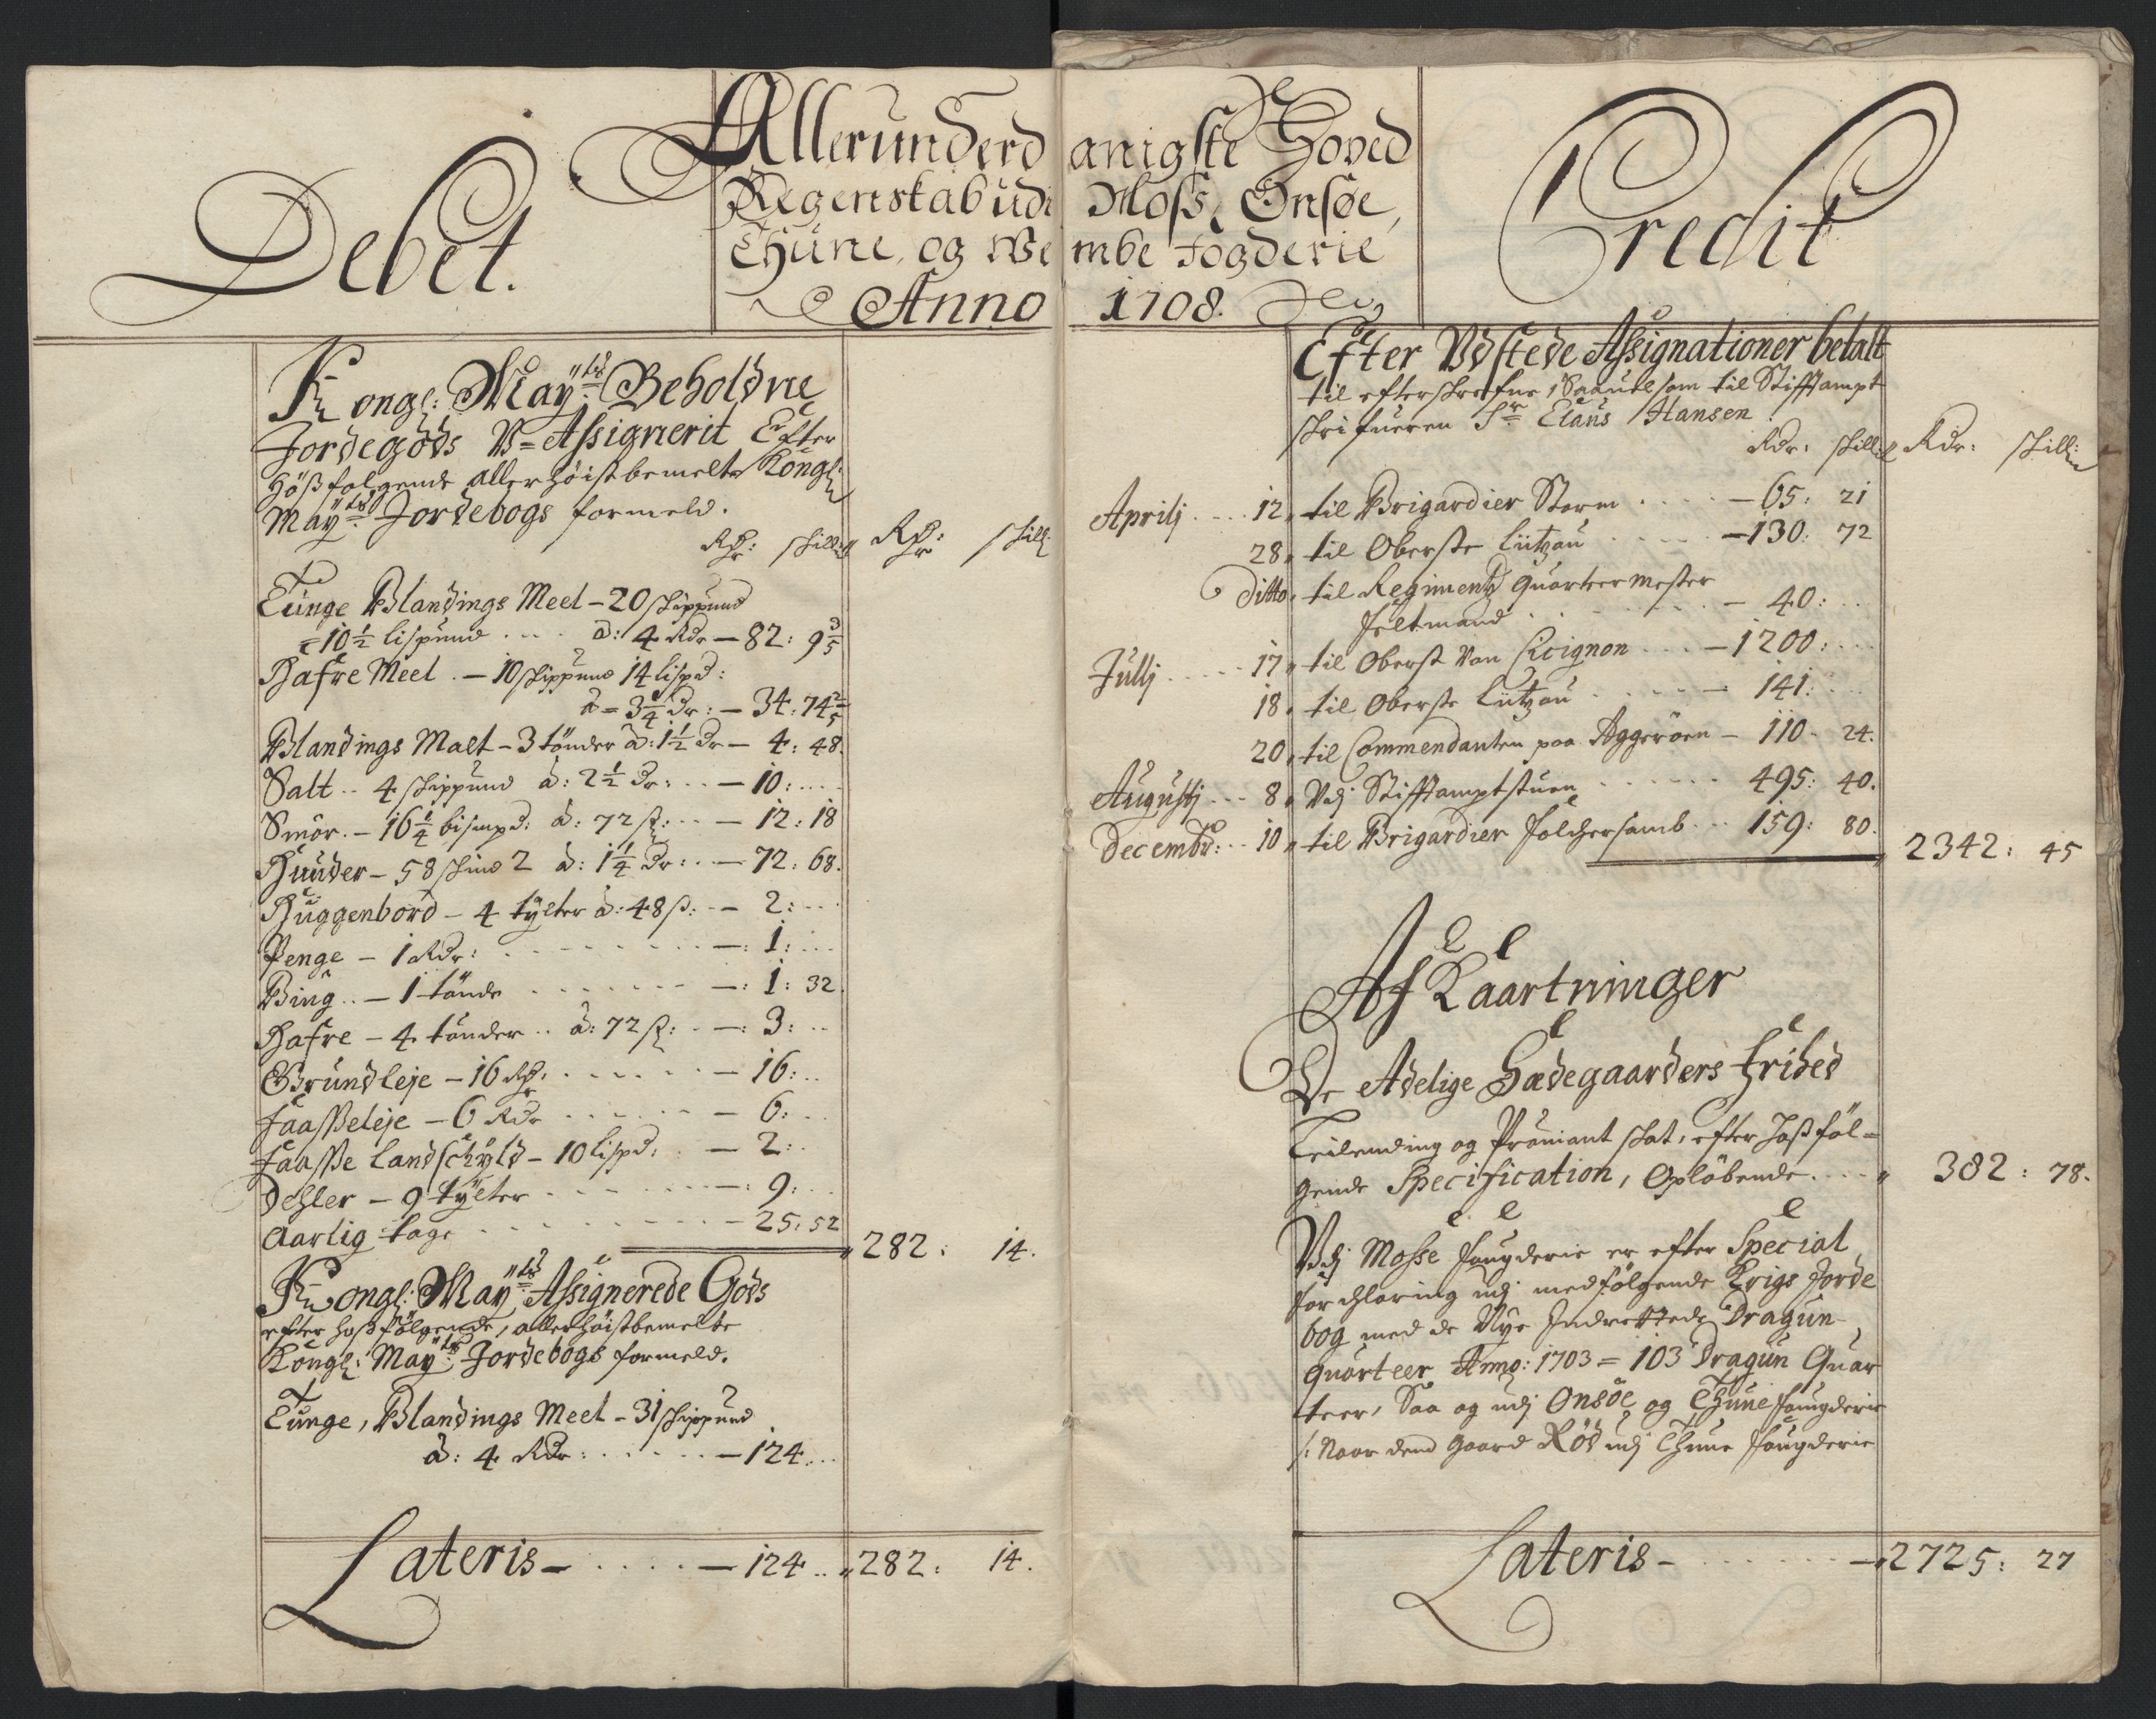 Debet.
Allerunderdanigste Hoved
Regenskab udi Moss, Onsøe,
Thune, og Wembe Fogderie
Anno 1708.
Credit
Kongl: May:ts Beholdne
Jordegods U=Assignerit Efter
Hoßfølgende allerhøistbemelte Kongl:
May:ts Jordebogs formeld.
Rdr: skill: Rdr: skill:
Tunge Blandings Meel - 20 skippund
10½ lispund .... à: 4 Rdr - 82: 9 3/5
Hafre Meel. - 10 skippund 14 lispd:
à = 3¼ Dr: - 34: 74 2/5
Blandings Malt - 3 tönder à: 1½ Dr - 4: 48.
Salt .. 4 skippund à: 2½ Dr: .. - 10: ....
Smör. - 16¼ bismpd: à: 72 ß: .. - 12: 18
Huuder - 58 skind 2 à: 1¼ Dr: .. - 72: 68.
Huggenbord - 4 tylter à: 48 ß: - - 2: ...
Penge - 1 Rdr: - - - - - 1: ...
Biug .. - 1 tönde - - - - - 1: 32.
Hafre - 4 tönder .. à: 72 ß: - - 3: ..
Grundleje - 16 Rdr: - - - - 16: ..
Faasseleje - 6 Rdr - - - - 6: ..
Faasse landschyld - 10 lispd: - 2: .
Dehler - 9 tylter - - - - 9: ..
Aarlig tage - - - - - 25: 52
282: 14.
Kongl: May:ts Assignerede Gods
efter hoßfölgende, allerhöistbemelte
Kongl: May:ts Jordebogs formeld.
Tunge, Blandings Meel - 31 skippund
à: 4 Rdr: - - - - - 124 ...
Lateris - .... - 124 .. 282: 14.
Efter Udstede Assignationer betalt
til efterskrefne, Saavelsom til Stifftampt
skrifueren Sr Claus Hansen
Rdr: skill: Rdr: skill:
Aprilj .... 12, til Brigardier Storm .... - 65: 21
28, til Oberste Lützau .... - 130: 72
Ditto, til Regimentz Quarteer Mester
Feltmand .... - 40: ..
Jullj .... 17, til Oberst Von Cicignon ... - 1200: ...
18, til Oberste Lützau .... - 141: ...
20, til Commendanten paa Aggeröen - 110 - 24.
Augustj ... 8, Vdj Stifftamptstuen ..... 495: 40.
Decembr: .. 10, til Brigardier Folckersamb ... 159: 80.
2342: 45
Af Kaartninger
De Adelige Sædegaarders Frihed
Leilending og Proviant skat, efter Hoßföl=
gende Specification, Oplöbende .... 382: 78.
Vdj Mosse Fougderie er efter Special
forchlaring udj medfölgende Krigs Jorde
bog med de Nye Indrettede Dragun
quarteer Anno: 1703 = 103 Dragun Quar
teer, Saa og udj Onsöe og Thune Fougderie
/: Naar dend Gaard Röd udj Thune Fougderie
Lateris - ...... - 2725: 27